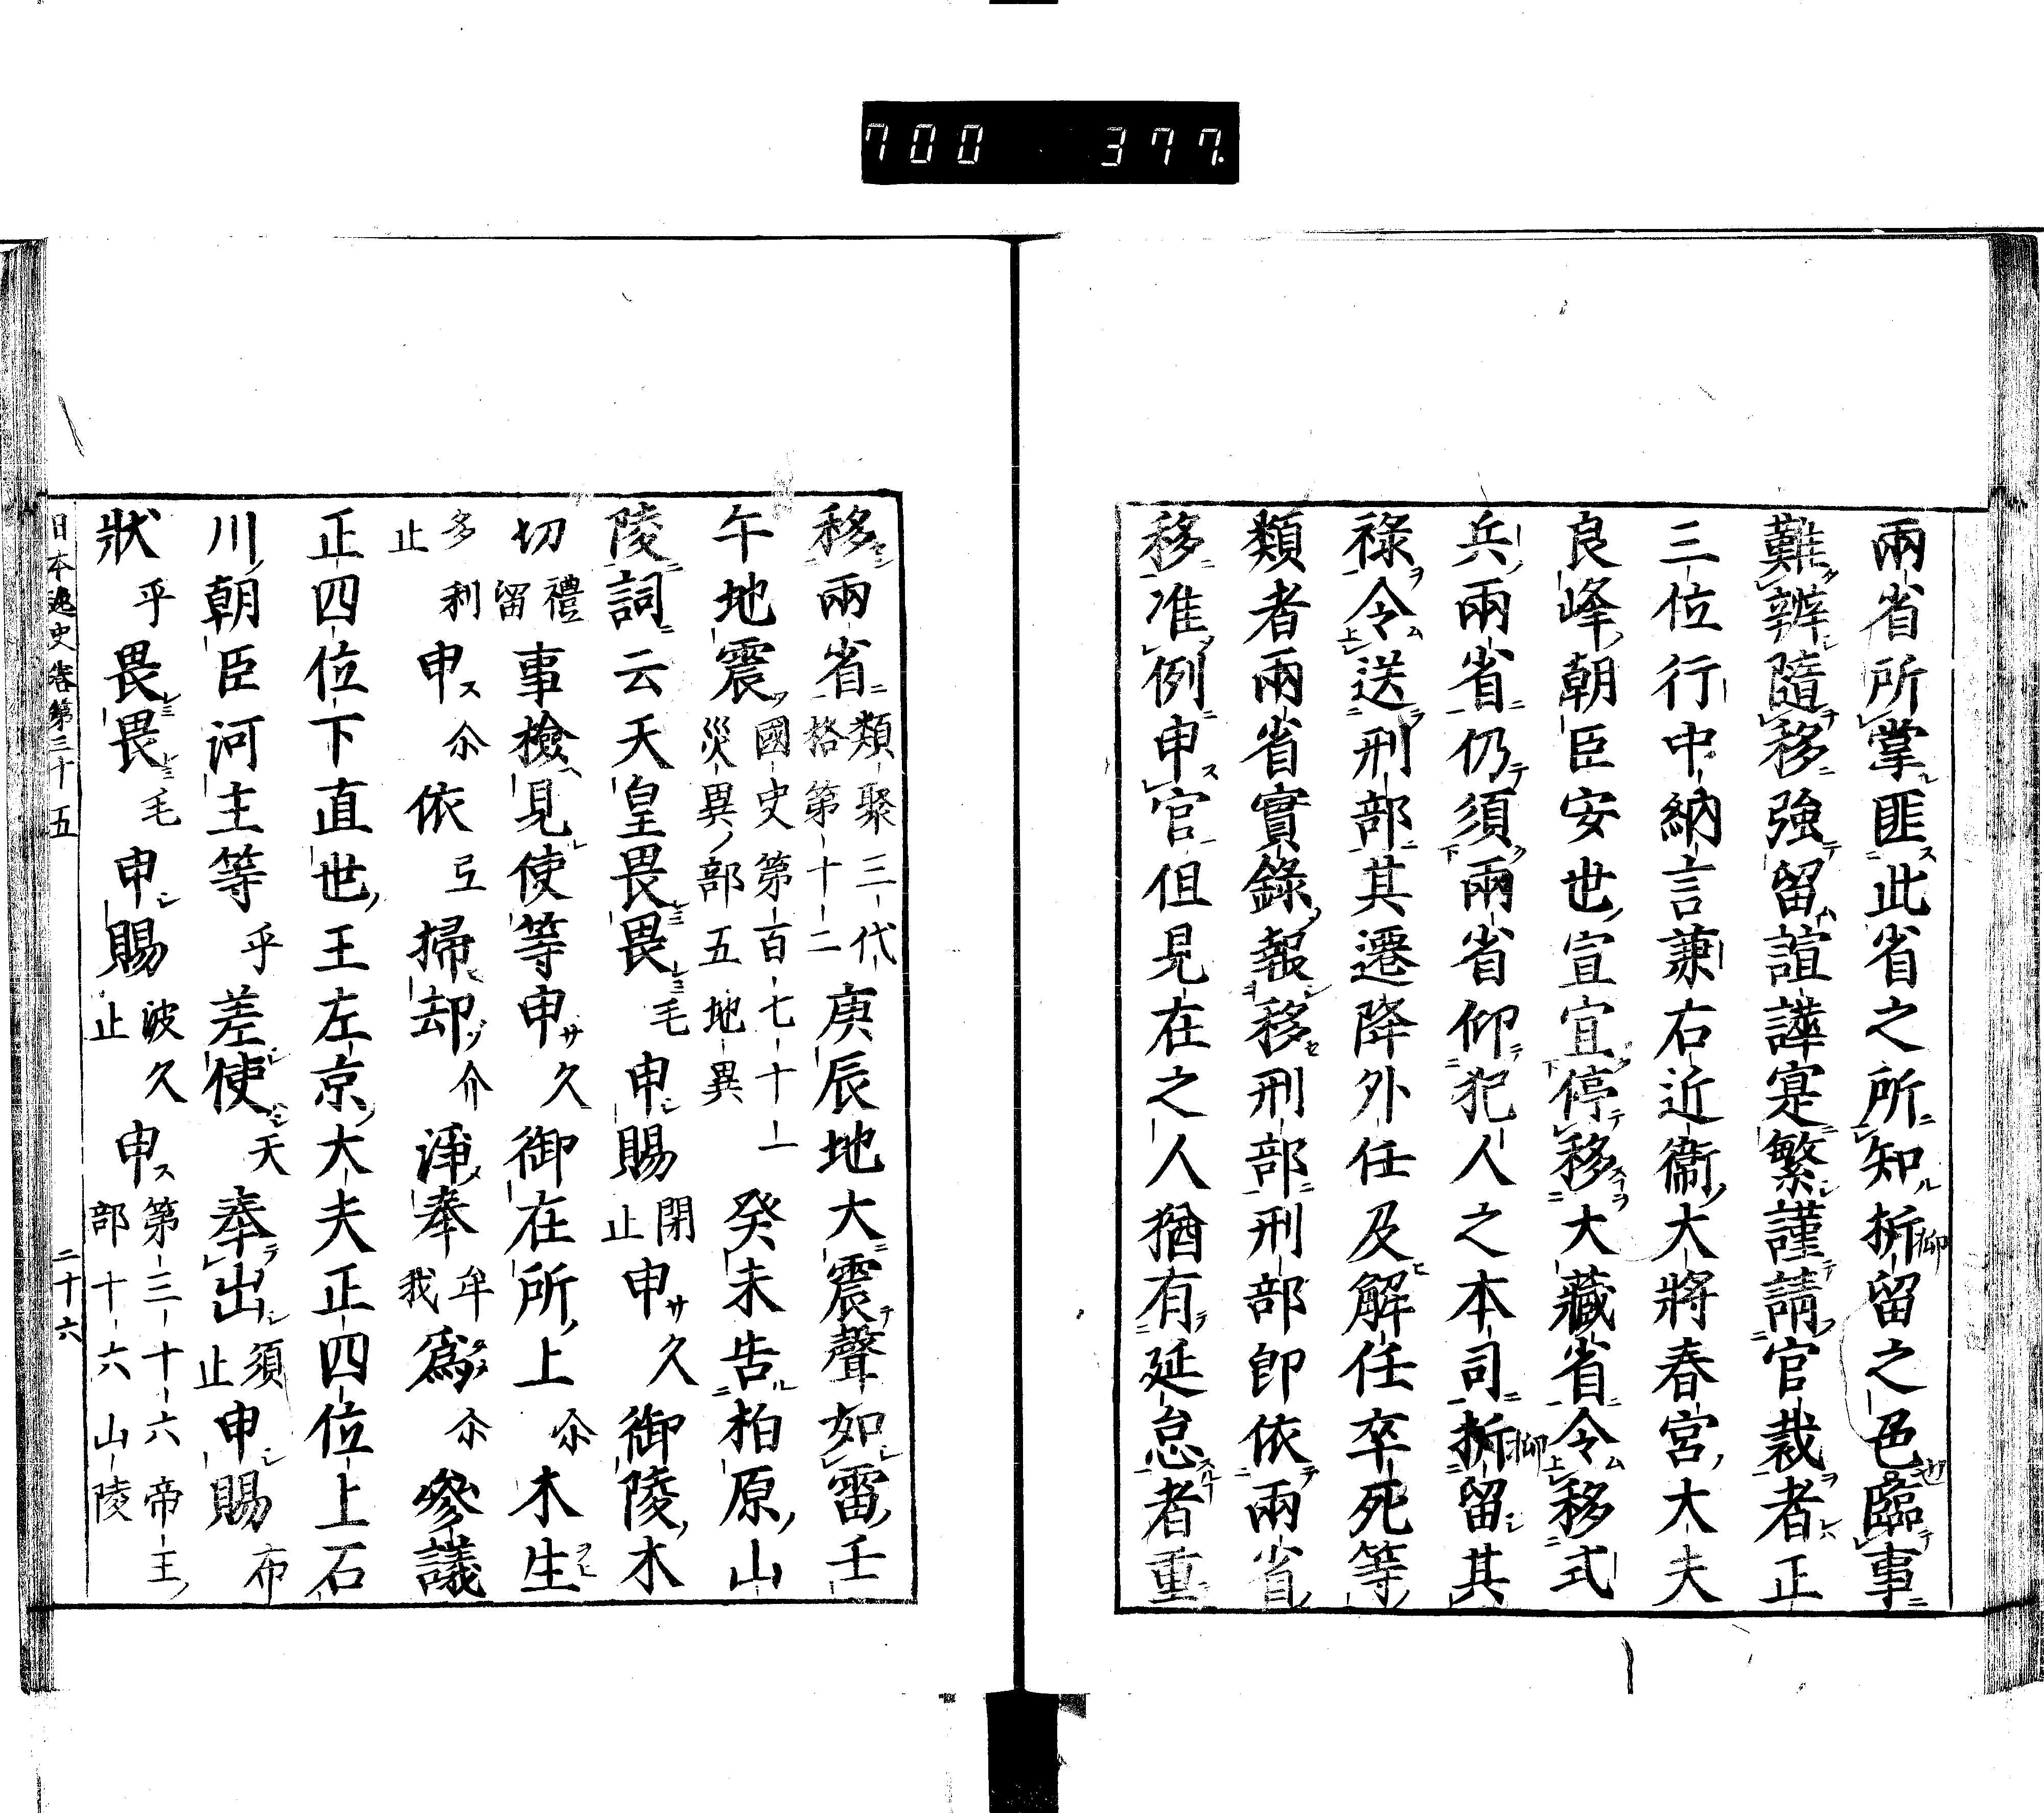 700 377.
兩省所掌匪此省之所知折留之色臨事
難辨隨移強留諠譁寔繁謹請官裁者正
三位行中納言兼右近衞大將春宮大夫
良峰朝臣安世宣宜停移大藏省令移式
兵兩省仍須兩省仰犯人之本司折留其
祿令送刑部其遷降外任及解任卒死等
類者兩省實錄報移刑部刑部即依兩省
移准例申官但見在之人猶有延怠者重
移兩省類聚三代格第十二庚辰地大震聲如雷壬
午地震國史第百七十一災異部五地異癸未告柏原山
陵詞云天皇畏畏毛申賜閇止申久御陵木
切禮留事檢見使等申久御在所上尒木生
多利止申尒依弖掃却介淨奉牟我爲尒參議
正四位下直世王左京大夫正四位上石
川朝臣河主等乎差使天奉出須止申賜布
狀乎畏畏毛申賜波久止申第三十六帝王部十六山陵
日本逸史卷第三十五 二十六